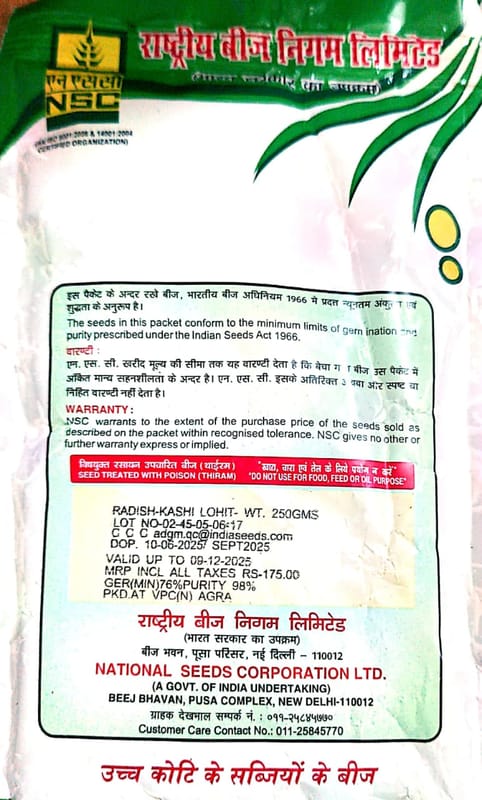 एन एस सी
NSC
(AN ISO 9001:2008 & 14001:2004
CERTIFIED ORGANIZATION)
राष्ट्रीय बीज निगम लिमिटेड
(भारत सरकार का उपक्रम)
इस पैकेट के अन्दर रखे बीज, भारतीय बीज अधिनियम 1966 मे प्रदत्त न्यूनतम अंकु एवं
शुद्धता के अनुरूप है।
The seeds in this packet conform to the minimum limits of germ ination and
purity prescribed under the Indian Seeds Act 1966.
वारण्टी :
एन. एस. सी. खरीद मूल्य की सीमा तक यह वारण्टी देता है कि बेचा ग बीज उस पैकेट में
अंकित मान्य सहनशीलता के अन्दर है। एन. एस. सी. इसके अतिरिक्त और स्पष्ट या
निहित वारण्टी नहीं देता है।
WARRANTY:
NSC warrants to the extent of the purchase price of the seeds sold as
described on the packet within recognised tolerance. NSC gives no other or
further warranty express or implied.
विषयुक्त रसायन उपचारित बीज (थाईरम) "खाद्य, चारा एवं तेल के लिये प्रयोग न करें"
SEED TREATED WITH POISON (THIRAM) "DO NOT USE FOR FOOD, FEED OR OIL PURPOSE"
RADISH-KASHI LOHIT- WT. 250GMS
LOT NO-02-45-05-06-17
C C C adgm.qc@indiaseeds.com
DOP. 10-06-2025/ SEPT2025
VALID UP TO 09-12-2025
MRP INCL ALL TAXES RS-175.00
GER(MIN)76%PURITY 98%
PKD.AT VPC(N) AGRA
राष्ट्रीय बीज निगम लिमिटेड
(भारत सरकार का उपक्रम)
बीज भवन, पूसा परिसर, नई दिल्ली - 110012
NATIONAL SEEDS CORPORATION LTD.
(A GOVT. OF INDIA UNDERTAKING)
BEEJ BHAVAN, PUSA COMPLEX, NEW DELHI-110012
ग्राहक देखभाल सम्पर्क नं. : ०११-२५८४५७७०
Customer Care Contact No.: 011-25845770
उच्च कोटि के सब्जियों के बीज